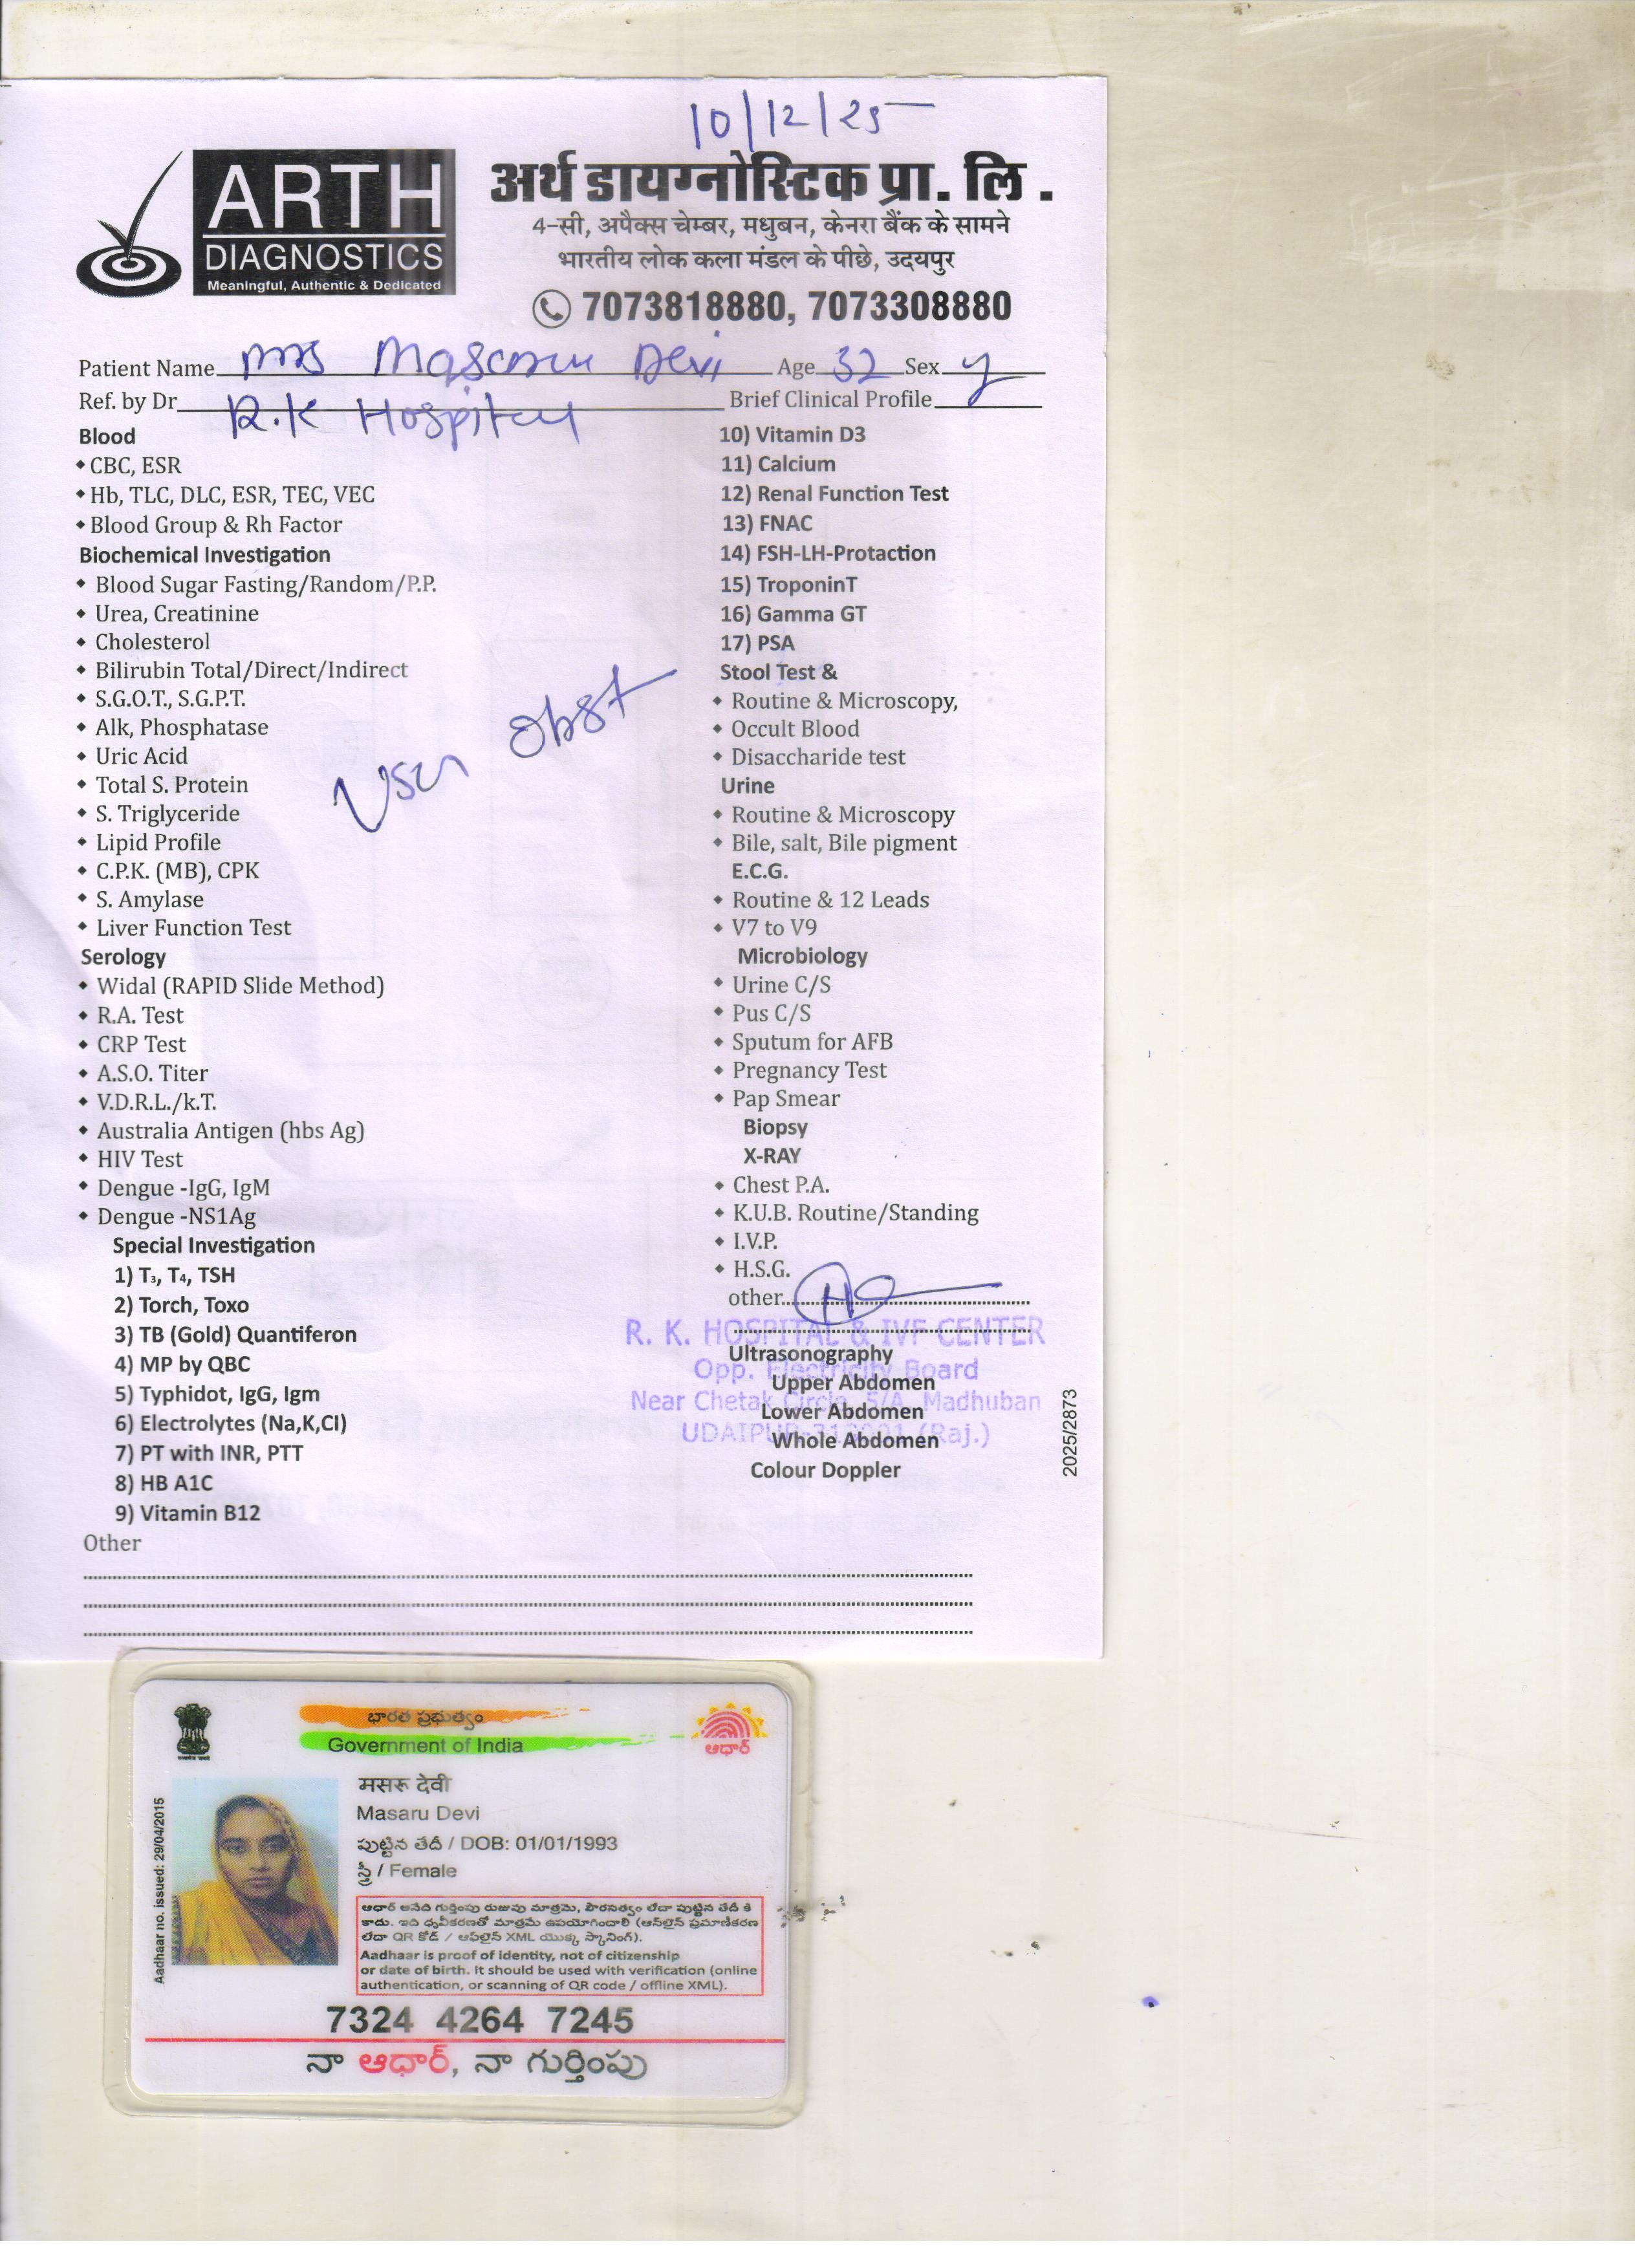 10/12/25
ARTH
DIAGNOSTICS
Meaningful, Authentic & Dedicated
अर्थ डायग्नोस्टिक प्रा. लि .
4-सी, अपैक्स चेम्बर, मधुबन, केनरा बैंक के सामने
भारतीय लोक कला मंडल के पीछे, उदयपुर
7073818880, 7073308880
Patient Name Mrs Devi Age 32 Sex
Ref. by Dr R.K Hospital Brief Clinical Profile
Blood
CBC, ESR
Hb, TLC, DLC, ESR, TEC, VEC
Blood Group & Rh Factor
Biochemical Investigation
Blood Sugar Fasting/Random/P.P.
Urea, Creatinine
Cholesterol
Bilirubin Total/Direct/Indirect
S.G.O.T., S.G.P.T.
Alk, Phosphatase
Uric Acid
Total S. Protein
S. Triglyceride
Lipid Profile
C.P.K. (MB), CPK
S. Amylase
Liver Function Test
Serology
Widal (RAPID Slide Method)
R.A. Test
CRP Test
A.S.O. Titer
V.D.R.L./k.T.
Australia Antigen (hbs Ag)
HIV Test
Dengue -IgG, IgM
Dengue -NS1Ag
Special Investigation
1) T₃, T₄, TSH
2) Torch, Toxo
3) TB (Gold) Quantiferon
4) MP by QBC
5) Typhidot, IgG, Igm
6) Electrolytes (Na,K,Cl)
7) PT with INR, PTT
8) HB A1C
9) Vitamin B12
Other
Obst
10) Vitamin D3
11) Calcium
12) Renal Function Test
13) FNAC
14) FSH-LH-Protaction
15) TroponinT
16) Gamma GT
17) PSA
Stool Test &
Routine & Microscopy,
Occult Blood
Disaccharide test
Urine
Routine & Microscopy
Bile, salt, Bile pigment
E.C.G.
Routine & 12 Leads
V7 to V9
Microbiology
Urine C/S
Pus C/S
Sputum for AFB
Pregnancy Test
Pap Smear
Biopsy
X-RAY
Chest P.A.
K.U.B. Routine/Standing
I.V.P.
H.S.G.
other
R. K. HOSPITAL & IVF CENTER
Opp. Electricity Board
Near Chetak Circle, 5/A, Madhuban
UDAIPUR-313001 (Raj.)
Ultrasonography
Upper Abdomen
Lower Abdomen
Whole Abdomen
Colour Doppler
2025/2873
భారత ప్రభుత్వం
Government of India
ఆధార్
Aadhaar no. issued: 29/04/2015
मसरू देवी
Masaru Devi
పుట్టిన తేదీ / DOB: 01/01/1993
స్త్రీ / Female
ఆధార్ అనేది గుర్తింపు రుజువు మాత్రమే, పౌరసత్వం లేదా పుట్టిన తేదీ కి
కాదు. ఇది ధృవీకరణతో మాత్రమే ఉపయోగించాలి (ఆన్‌లైన్ ప్రమాణీకరణ
లేదా QR కోడ్ / ఆఫ్‌లైన్ XML యొక్క స్కానింగ్).
Aadhaar is proof of identity, not of citizenship
or date of birth. It should be used with verification (online
authentication, or scanning of QR code / offline XML).
7324 4264 7245
నా ఆధార్, నా గుర్తింపు